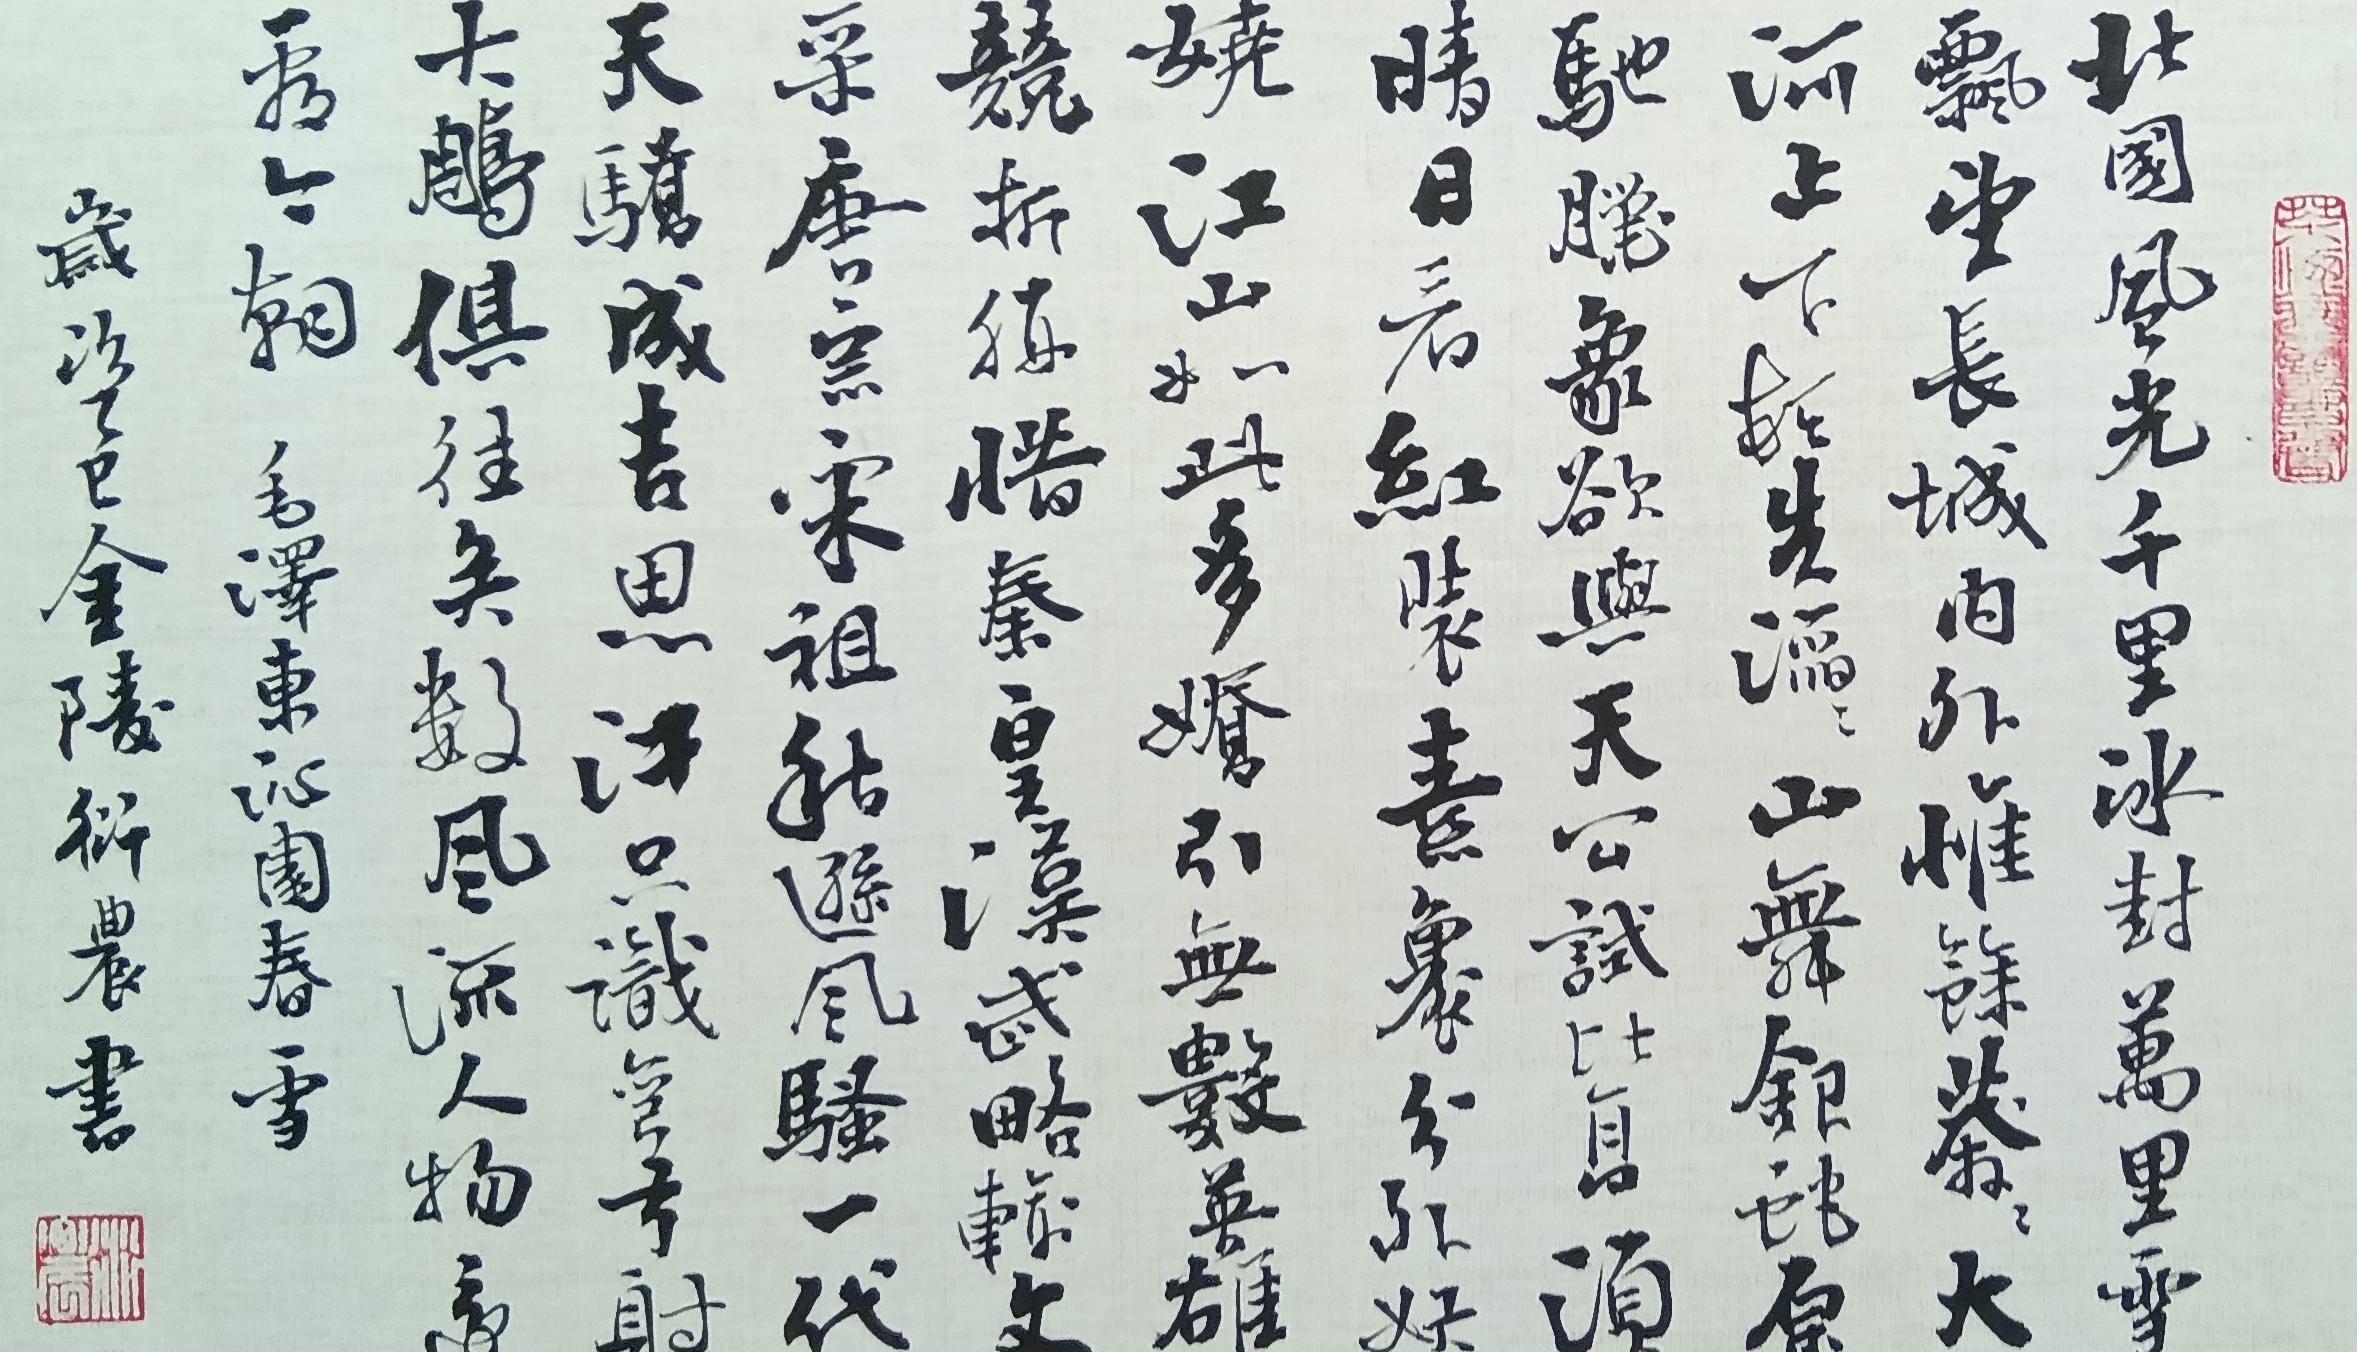 北國風光千里冰封萬里雪
飄望長城内外惟餘莽〻大
河上下頓失滔〻山舞銀蛇原
馳臘象欲與天公試比高須
晴日看紅裝素裹分外妖
嬈江山如此多嬌引無數英雄
競折腰惜秦皇漢武略輸文
采唐宗宋祖稍遜風騷一代
天驕成吉思汗只識彎弓射
大鵰俱往矣数風流人物還
看今朝 毛澤東沁園春雪
歲次乙巳金陵衍農書